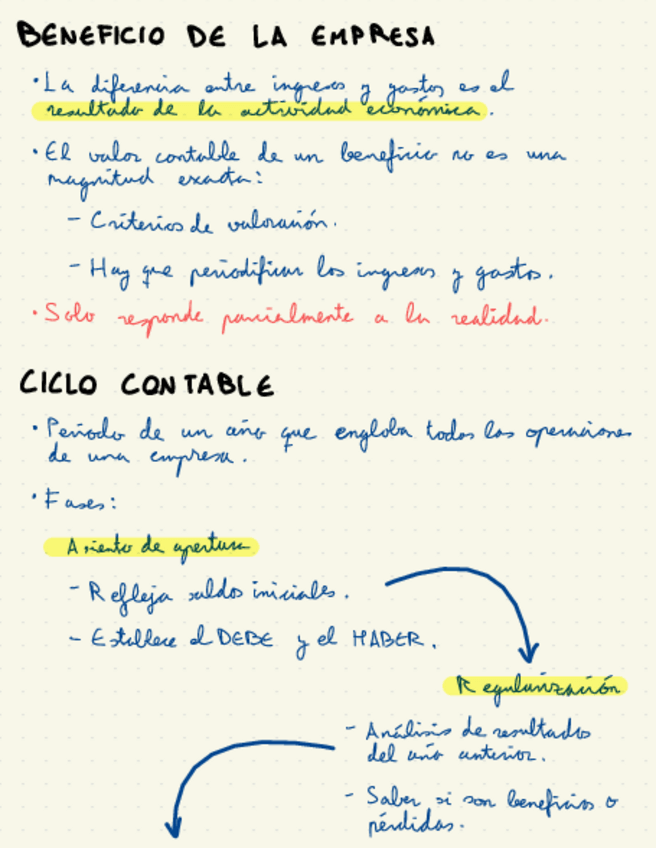 BENEFICIO DE LA EMPRESA
· La diferencia entre ingresos y gastos es el
resultado de la actividad económica.
· El valor contable de un beneficio no es una
magnitud exacta:
- Criterios de valoración.
- Hay que periodificar los ingresos y gastos.
· Solo responde parcialmente a la realidad.
CICLO CONTABLE
· Periodo de un año que engloba todas las operaciones
de una empresa.
· Fases:
Asiento de apertura
- Refleja saldos iniciales.
- Establece el DEBE y el HABER.
Regularización
- Análisis de resultados
del año anterior.
- Saber si son beneficios o
pérdidas.